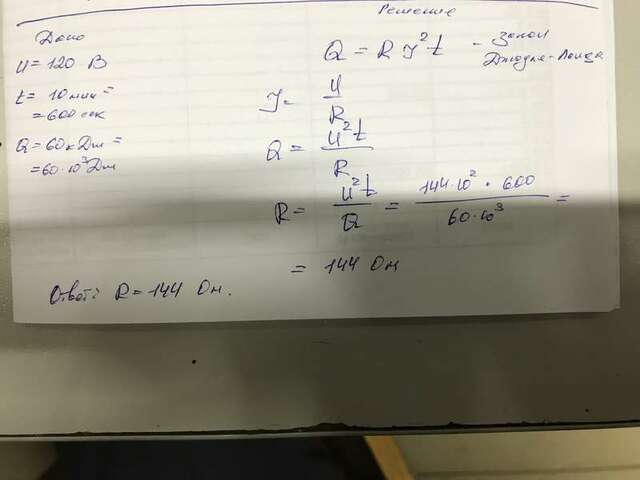 Решение
Дано
U = 120 В
t = 10 мин =
= 600 сек
Q = 60 кДж =
= 60·10³ Дж
Q = R J² t - Закон
Джоуля-Ленца
J = U/R
Q = U²t/R
R = U²t/Q = 144·10² · 600 / 60·10³ =
= 144 Ом
Ответ: R = 144 Ом.